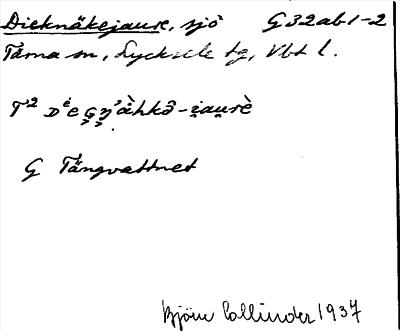 Dieknäkejaure, sjö G32ab1-2
Tärna sn, Lycksele tg, Vbt l.
T² DᵉeG̭ŋ̭'àhkô-i̭au̯rè
G Tängvattnet
Björn Collinder 1937